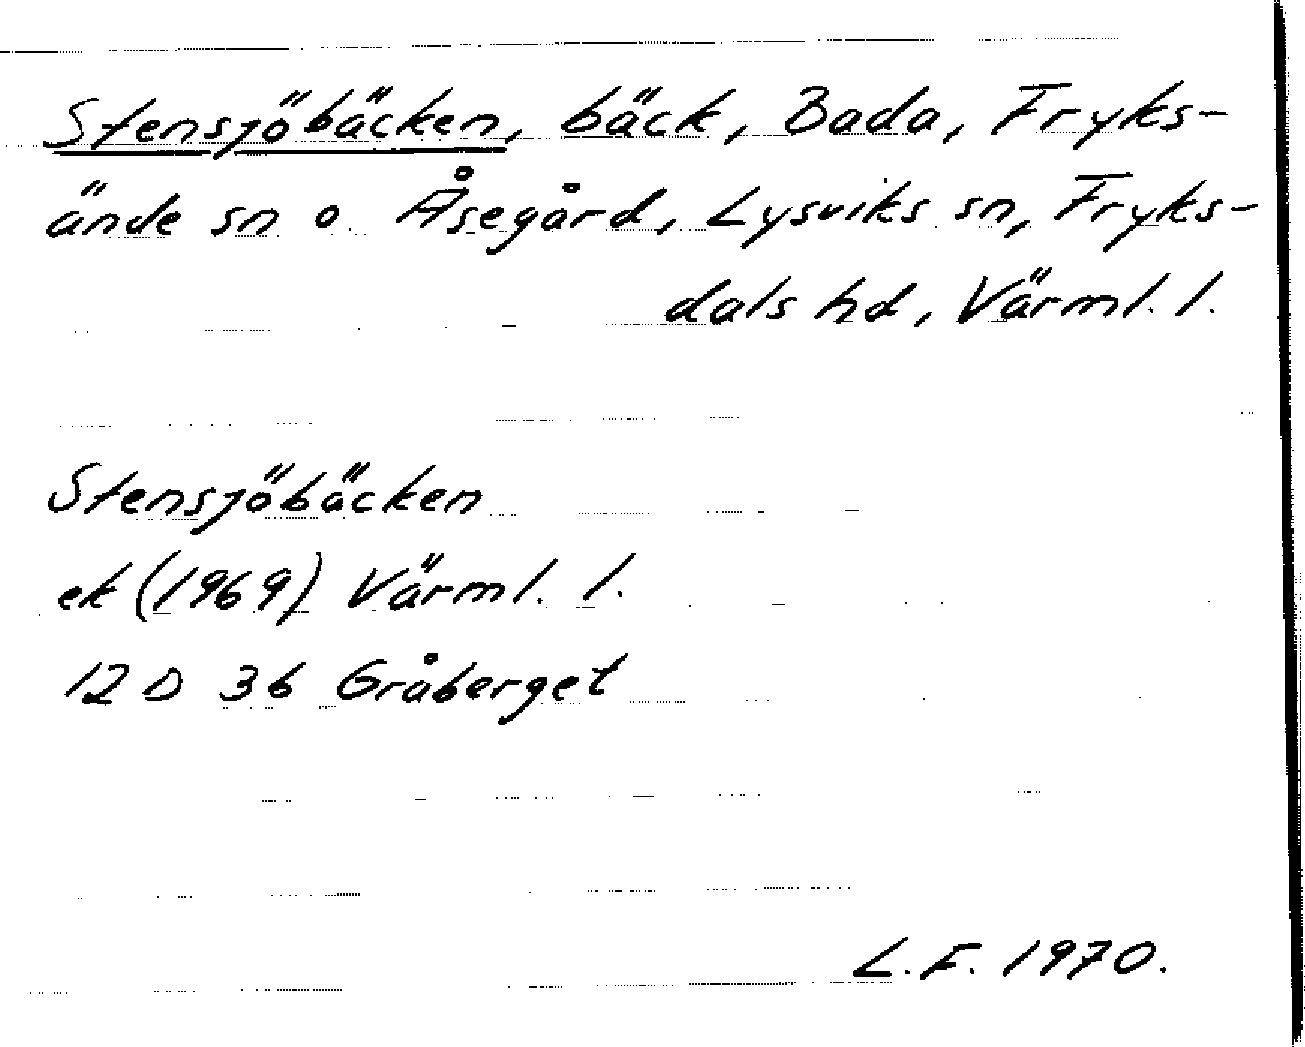 Stensjöbäcken, bäck, Bada, Fryks-
ände sn o. Åsegård, Lysviks sn, Fryks-
dals hd, Värml. l.
Stensjöbäcken
ek (1969) Värml. l.
12 D 3b Gråberget
L.F. 1970.